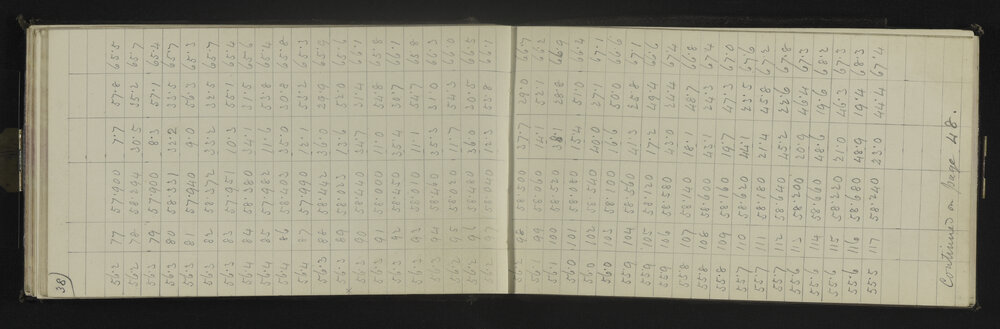 38
56·2 77 57·900 7·7 57·8 65·5
56·2 78 58·294 30·5 35·2 65·7
56·3 79 57·990 8·3 57·1 65·4
56·3 80 58·331 32·2 33·5 65·7
56·3 81 57·940 9·0 56·3 65·3
56·3 82 58·372 33·2 32·5 65·7
56·3 83 57·951 10·3 55·1 65·4
56·4 84 58·380 34·1 31·5 65·6
56·4 85 57·982 11·6 53·8 65·4
56·4 86 58·403 35·0 30·8 65·8
56·4 87 57·990 12·1 53·2 65·3
56·3 88 58·442 36·0 29·9 65·9
56·3 89 58·023 13·6 52·0 65·6
x 56·3 90 58·440 34·7 31·4 66·1
56·3 91 58·000 11·0 54·8 65·8
56·3 92 58·450 35·4 30·7 66·1
56·2 93 58·010 11·1 54·7 65·8
56·2 94 58·460 35·3 31·0 66·3
56·2 95 58·020 11·7 54·3 66·0
56·2 96 58·480 36·0 30·5 66·5
56·1 97 58·040 12·3 53·8 66·1
56·2 98 58·500 37·7 29·0 66·7
56·1 99 14·1 52·1 66·2
56·1 100 58·520 38·1 28·8 66·9
56·0 101 58·080 15·4 51·0 66·4
56·0 102 58·540 40·0 27·1 67·1
56·0 103 58·100 16·6 50·0 66·6
55·9 104 58·560 41·3 25·8 67·1
55·9 105 58·120 17·2 49·4 66·6
55·9 106 58·580 43·0 24·4 67·4
55·8 107 58·140 18·1 48·7 66·8
55·8 108 58·600 43·1 24·3 67·4
55·8 109 58·160 19·7 47·3 67·0
55·7 110 58·620 44·1 23·5 67·6
55·7 111 58·180 21·4 45·8 67·2
55·7 112 58·640 45·2 22·6 67·8
55·6 113 58·200 20·9 46·4 67·3
55·6 114 58·660 48·6 19·6 68·2
55·6 115 58·220 21·0 46·3 67·3
55·6 116 58·680 48·9 19·4 68·3
55·5 117 58·240 23·0 44·4 67·4
Continued on page 48.